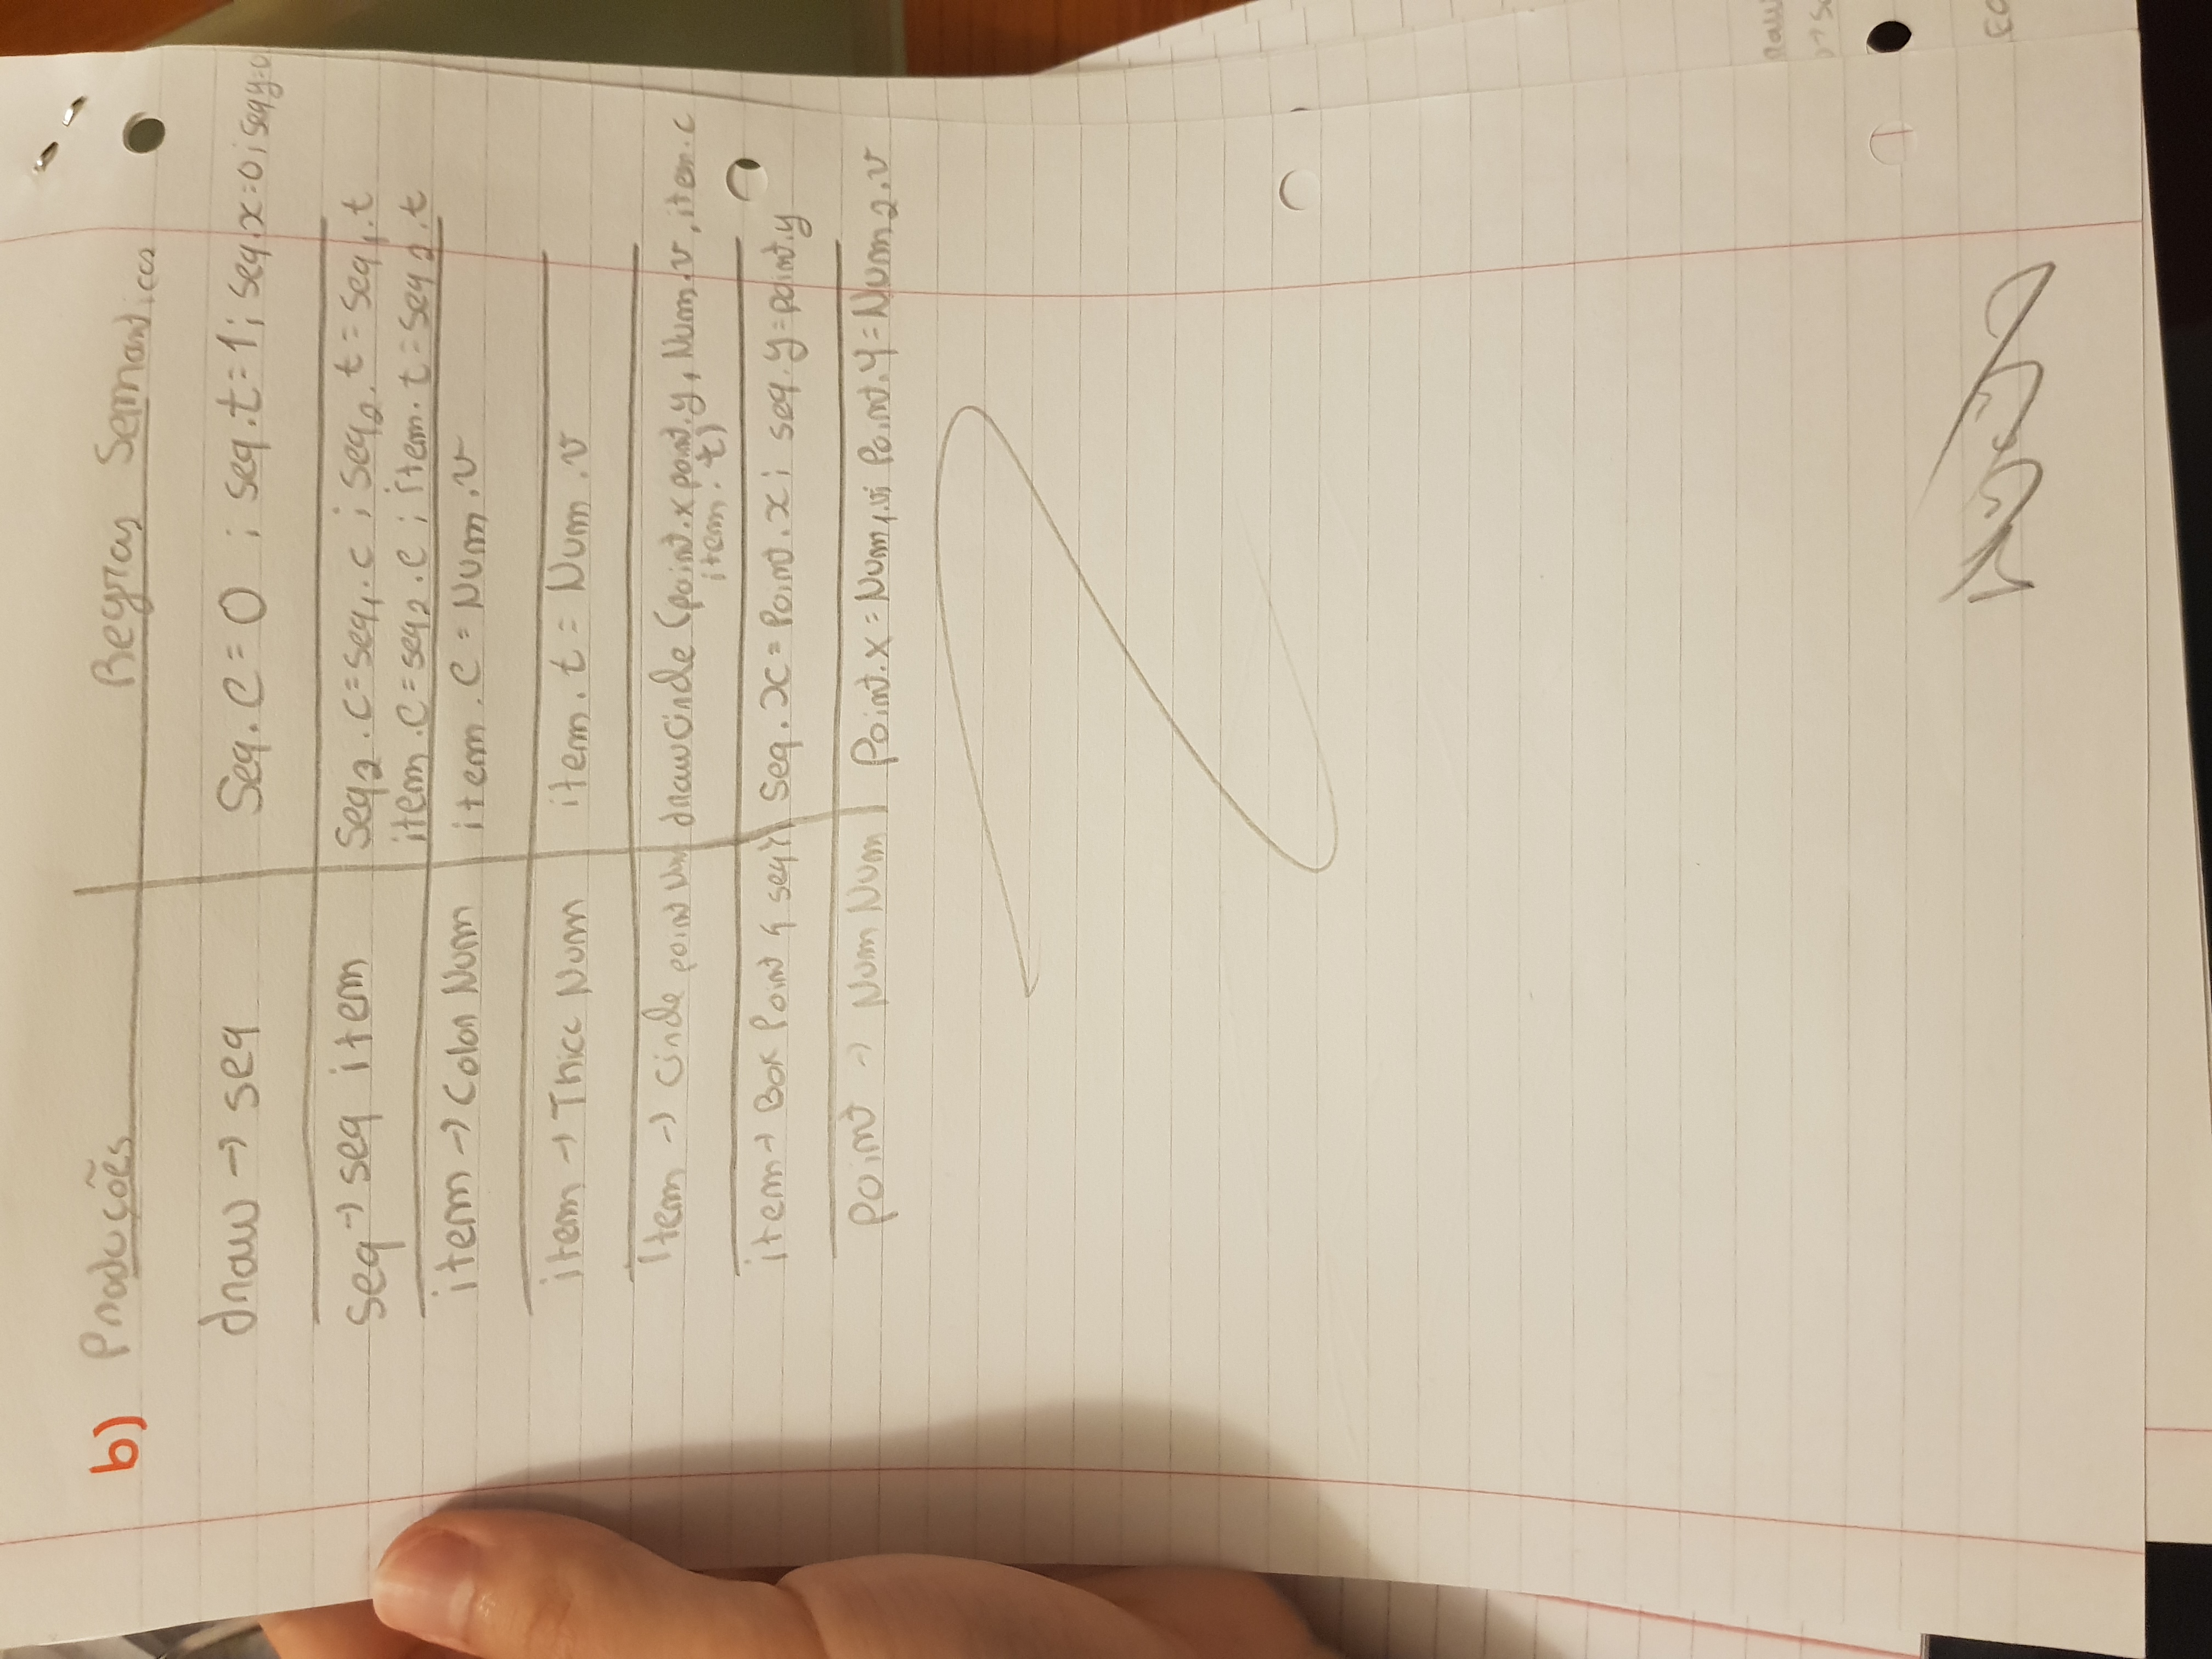 b) Produções Regras Semanticas
draw → seq Seq.c = 0 ; seq.t=1; seq.x=0; seq y=0
seq → seq item Seq2.c=seq1.c ; seq2.t=seq1.t
item.c=seq2.c ; item.t=seq2.t
item → Color Num item.c = Num.v
item → Thicc Num item.t = Num.v
Item → Circle point Num drawCircle (point.x point.y, Num.v, item.c
item.t)
item → Box Point { seq } Seq.x = Point.x; seq.y=point.y
point → Num Num Point.x = Num1.v; Point.y = Num2.v